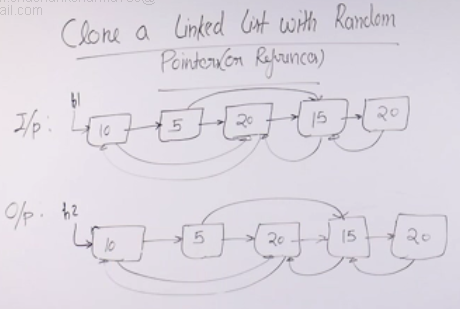 ail.com
Clone a Linked List with Random
Pointer(or Refrunca)
I/p:
h1
10 5 20 15 20
O/p.
h2
10 5 20 15 20